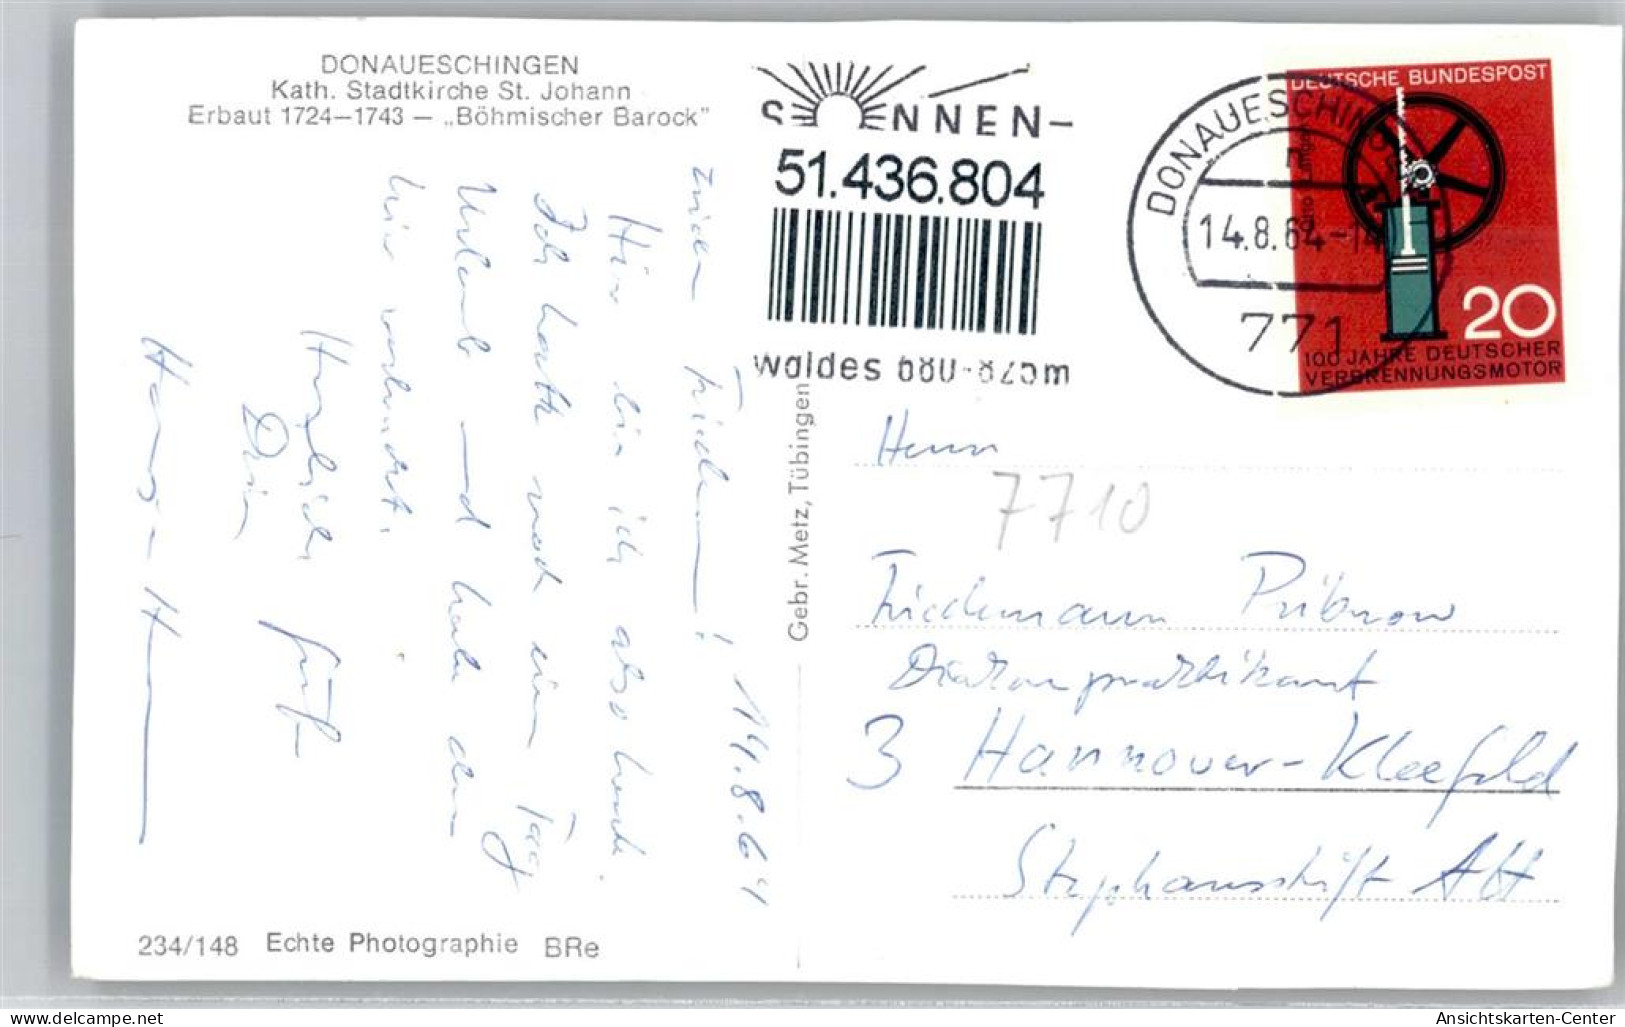 DONAUESCHINGEN
Kath. Stadtkirche St. Johann
Erbaut 1724–1743 – „Böhmischer Barock”
SONNEN-
51.436.804
waldes 680-875m
DONAUESCHINGEN
14.8.64-14
771
DEUTSCHE BUNDESPOST
Otto Langen
20
100 JAHRE DEUTSCHER
VERBRENNUNGSMOTOR
14.8.64
Friedemann!
Hier bin ich also heute.
Ich hatte noch ein Tag
Urlaub und habe den
hier
Herzlich grüßt
Dein
Hans-H
Gebr. Metz, Tübingen
Herrn
7710
Friedemann Pribnow
Diakonpraktikant
3 Hannover-Kleefeld
Stephansstift
234/148 Echte Photographie BRe
www.delcampe.net
Ansichtskarten-Center